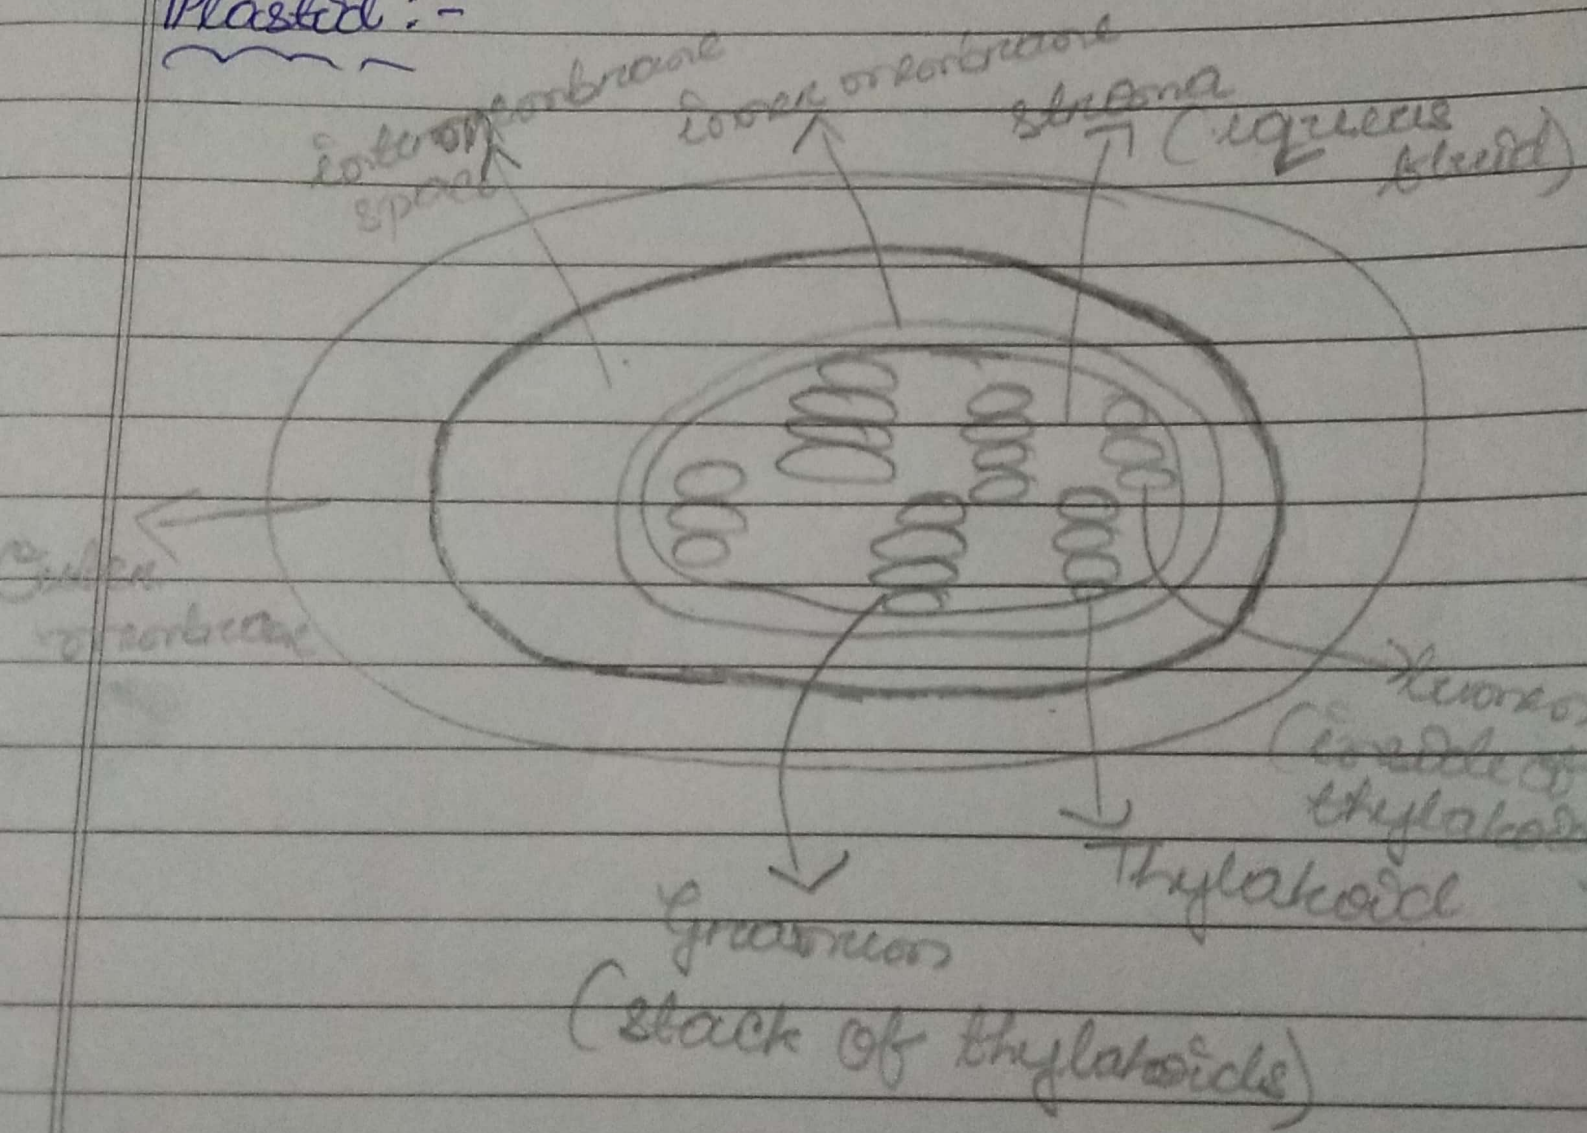 Plastid :-
intermembrane
space
inner membrane
stroma
(aqueous
fluid)
Outer
membrane
(inside of
thylakoid
Thylakoid
Granum
(stack of thylakoids)